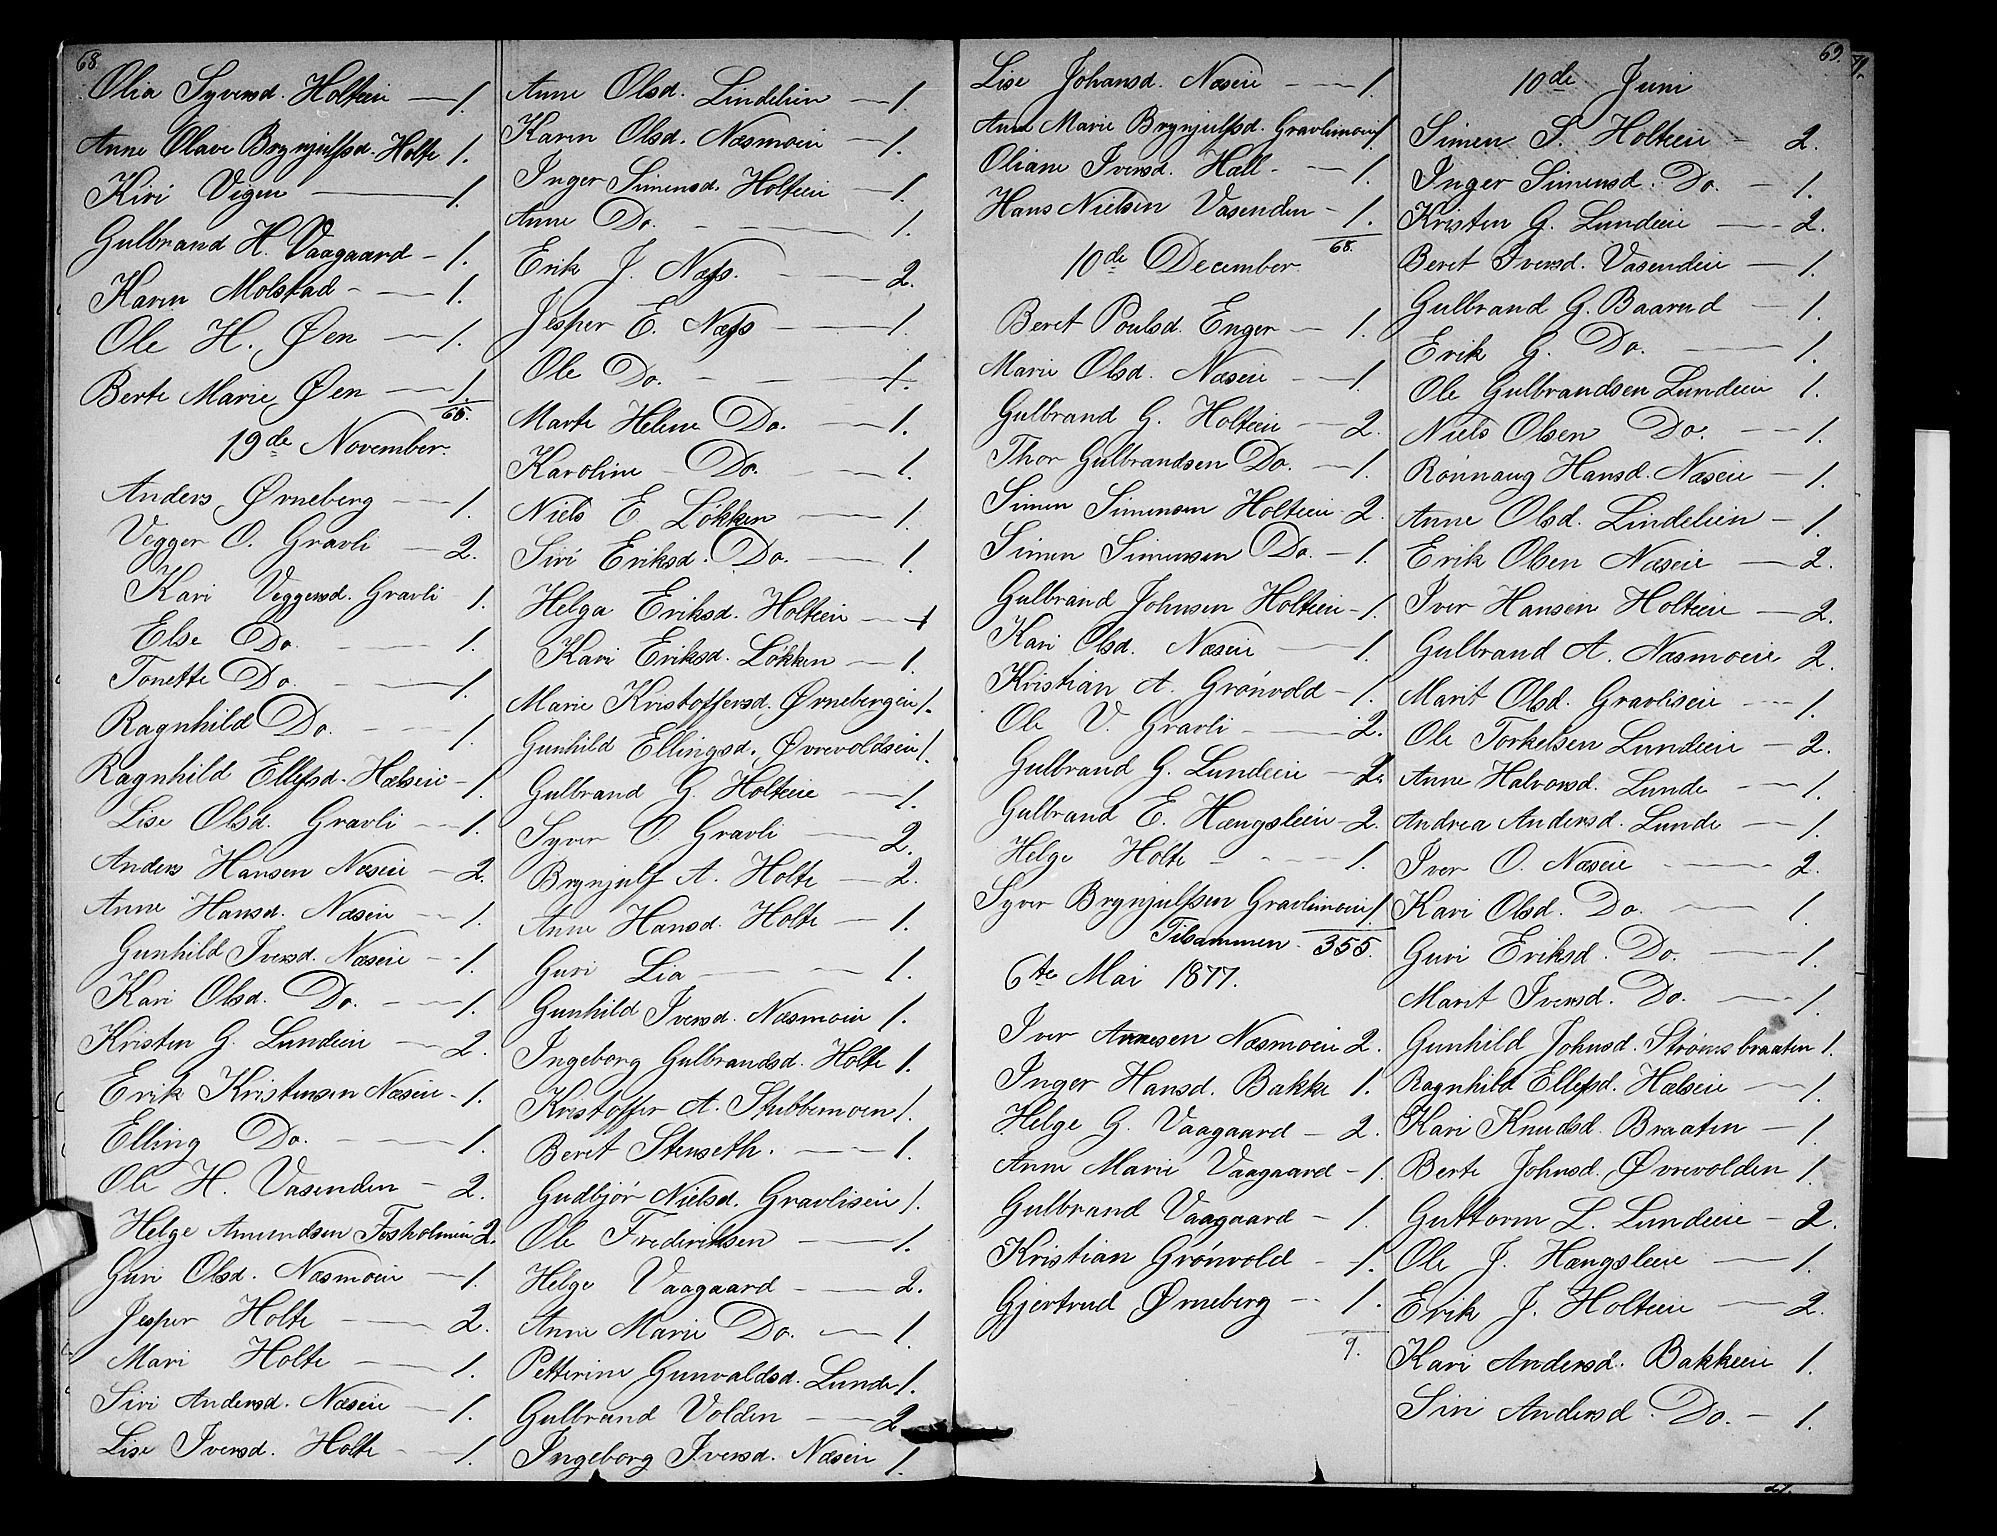 68.
Olia Syversd. Holteie — 1.
Anne Olave Brynjulfsd. Holte 1.
Kiri Vigen — 1.
Gulbrand H. Vaagaard - 1.
Karen Molstad - — 1.
Ole H. Øen — 1.
Berte Marie Øen — 1.
65.
19de November.
Anders Ørneberg — 1.
Vegger O. Gravli — 2.
Kari Veggersd. Gravli - 1.
Else Do. — 1.
Tonette Do. — 1.
Ragnhild Do. - — 1.
Ragnhild Ellefsd. Hælseie - 1.
Lise Olsd. Gravli — 1.
Anders Hansen Næseie - 2.
Anne Hansd. Næseie — 1.
Gunhild Iversd. Næseie - 1.
Kari Olsd. Do. - — 1.
Kristen G. Lundeeie — 2.
Erik Kristensen Næseie - 1.
Elling Do. - — 1.
Ole H. Vasenden - 2.
Helge Amundsen Fosholmeie 2.
Guri Olsd. Næsmoeie — 1.
Jesper Holte - — 2.
Mari Holte — 1.
Siri Andersd. Næseie — 1.
Lise Iversd. Holte - — 1.
Anne Olsd. Lindelien — 1.
Karen Olsd. Næsmoeie — 1.
Inger Simensd. Holteeie — 1.
Anne Do. - — 1.
Erik J. Næss. - — 2.
Jesper E. Næss - — 1.
Ole Do. - - — 1.
Marte Helene Do. — 1.
Karoline - Do. - — 1.
Niels E Løkken — 1.
Siri Eriksd. Do. — 1.
Helga Eriksd. Holteeie — 1
Kari Eriksd. Løkken — 1.
Marie Kristoffersd. Ørnebergeie 1.
Gunhild Ellingsd. Øvrevoldseie 1.
Gulbrand G. Holteeie — 1.
Syver O Gravli — 2.
Brynjulf A. Holte — 2.
Anne Hansd. Holte — 1.
Guri Lia — - — 1.
Gunhild Iversd. Næsmoeie 1.
Ingeborg Gulbrandsd. Holte 1.
Kristoffer A. Stubbemoen 1.
Beret Stenseth. - — 1.
Gudbjør Nielsd. Gravliseie 1.
Ole Frederiksen — 1.
Helge Vaagaard - — 2.
Anne Marie Do. — 1.
Petterine Gunvaldsd. Lunde 1.
Gulbrand Volden — 2
Ingeborg Iversd. Næseie 1.
Lise Johansd. Næseie - — 1.
Anne Marie Brynjulfsd. Gravlimoeie 1
Oliane Iversd. Hall - — 1.
Hans Nielsen Vasenden - 1.
68.
10de December.
Beret Poulsd. Enger — 1.
Marie Olsd. Næseie - — 1.
Gulbrand G. Holteeie — 2.
Thor Gulbrandsen Do. — 1.
Simen Simensen Holteeie 2.
Simen Simensen Do. - 1.
Gulbrand Johnsen Holteeie - 1.
Kari Olsd. Næseie — 1.
Kristian A. Grönvold - 1.
Ole V. Gravli — 2.
Gulbrand G. Lundeeie — 2.
Gulbrand E. Hængsleeie - 2.
Helge Holte - - — 1.
Syver Brynjulfsen Gravlimoeie 1.
Tilsammen. 355.
6te Mai 1877.
Iver Arnesen Næsmoeie 2.
Inger Hansd. Bakke 1.
Helge G. Vaagaard — 2.
Anne Marie Vaagaard - 1.
Gulbrand Vaagaard - 1.
Kristian Grönvold - 1.
Gjertrud Ørneberg - 1.
9.
69.
71.
10de Juni
Simen S. Holteeie - 2.
Inger Simensd. Do. - 1.
Kristen G. Lundeeie — 2.
Beret Iversd. Vasendeie — 1.
Gulbrand G. Baarud — 1.
Erik G. Do. — 1.
Ole Gulbrandsen Lundeeie 1.
Niels Olsen Do. — 1.
Rönnaug Hansd. Næseie — 1.
Anne Olsd. Lindelien — 1.
Erik Olsen Næseie — 2.
Iver Hansen Holteeie — 2.
Gulbrand A. Næsmoeie 2.
Marit Olsd. Gravliseie — 1.
Ole Torkelsen Lundeeie — 2.
Anne Halvorsd. Lunde — 1.
Andrea Andersd. Lunde — 1.
Iver O. Næseie — 2.
Kari Olsd. Do. — 1.
Guri Eriksd. Do. — 1.
Marit Iversd. Do. — 1.
Gunhild Johnsd. Strömsbraaten 1.
Ragnhild Ellefsd. Hælseie — 1.
Kari Knudsd. Braaten — 1.
Berte Johnsd. Øvrevolden 1.
Guttorm L. Lundeeie - 2.
Ole J. Hængsleeie — 1.
Erik J. Holteeie — 2.
Kari Andersd. Bakkeeie 1.
Siri Andersd. Do. — 1.